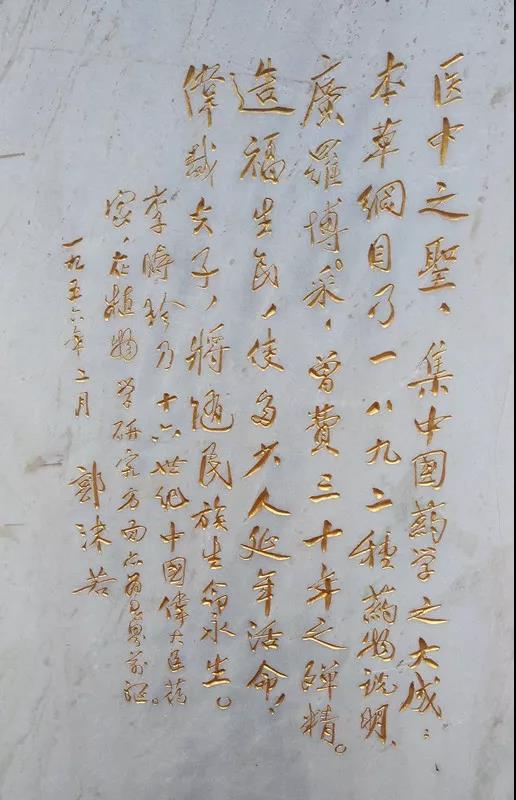 医中之聖、集中國药学之大成；
本草綱目乃一八九二種药物说明、
廣羅博采、曾費三十年之殫精。
造福生民、使多少人延年活命！
偉哉夫子、將随民族生命永生。
李時珍乃十六世纪中國偉大医药
家、在植物学研究方面亦为世界前驱。
一九五六年二月 郭沫若